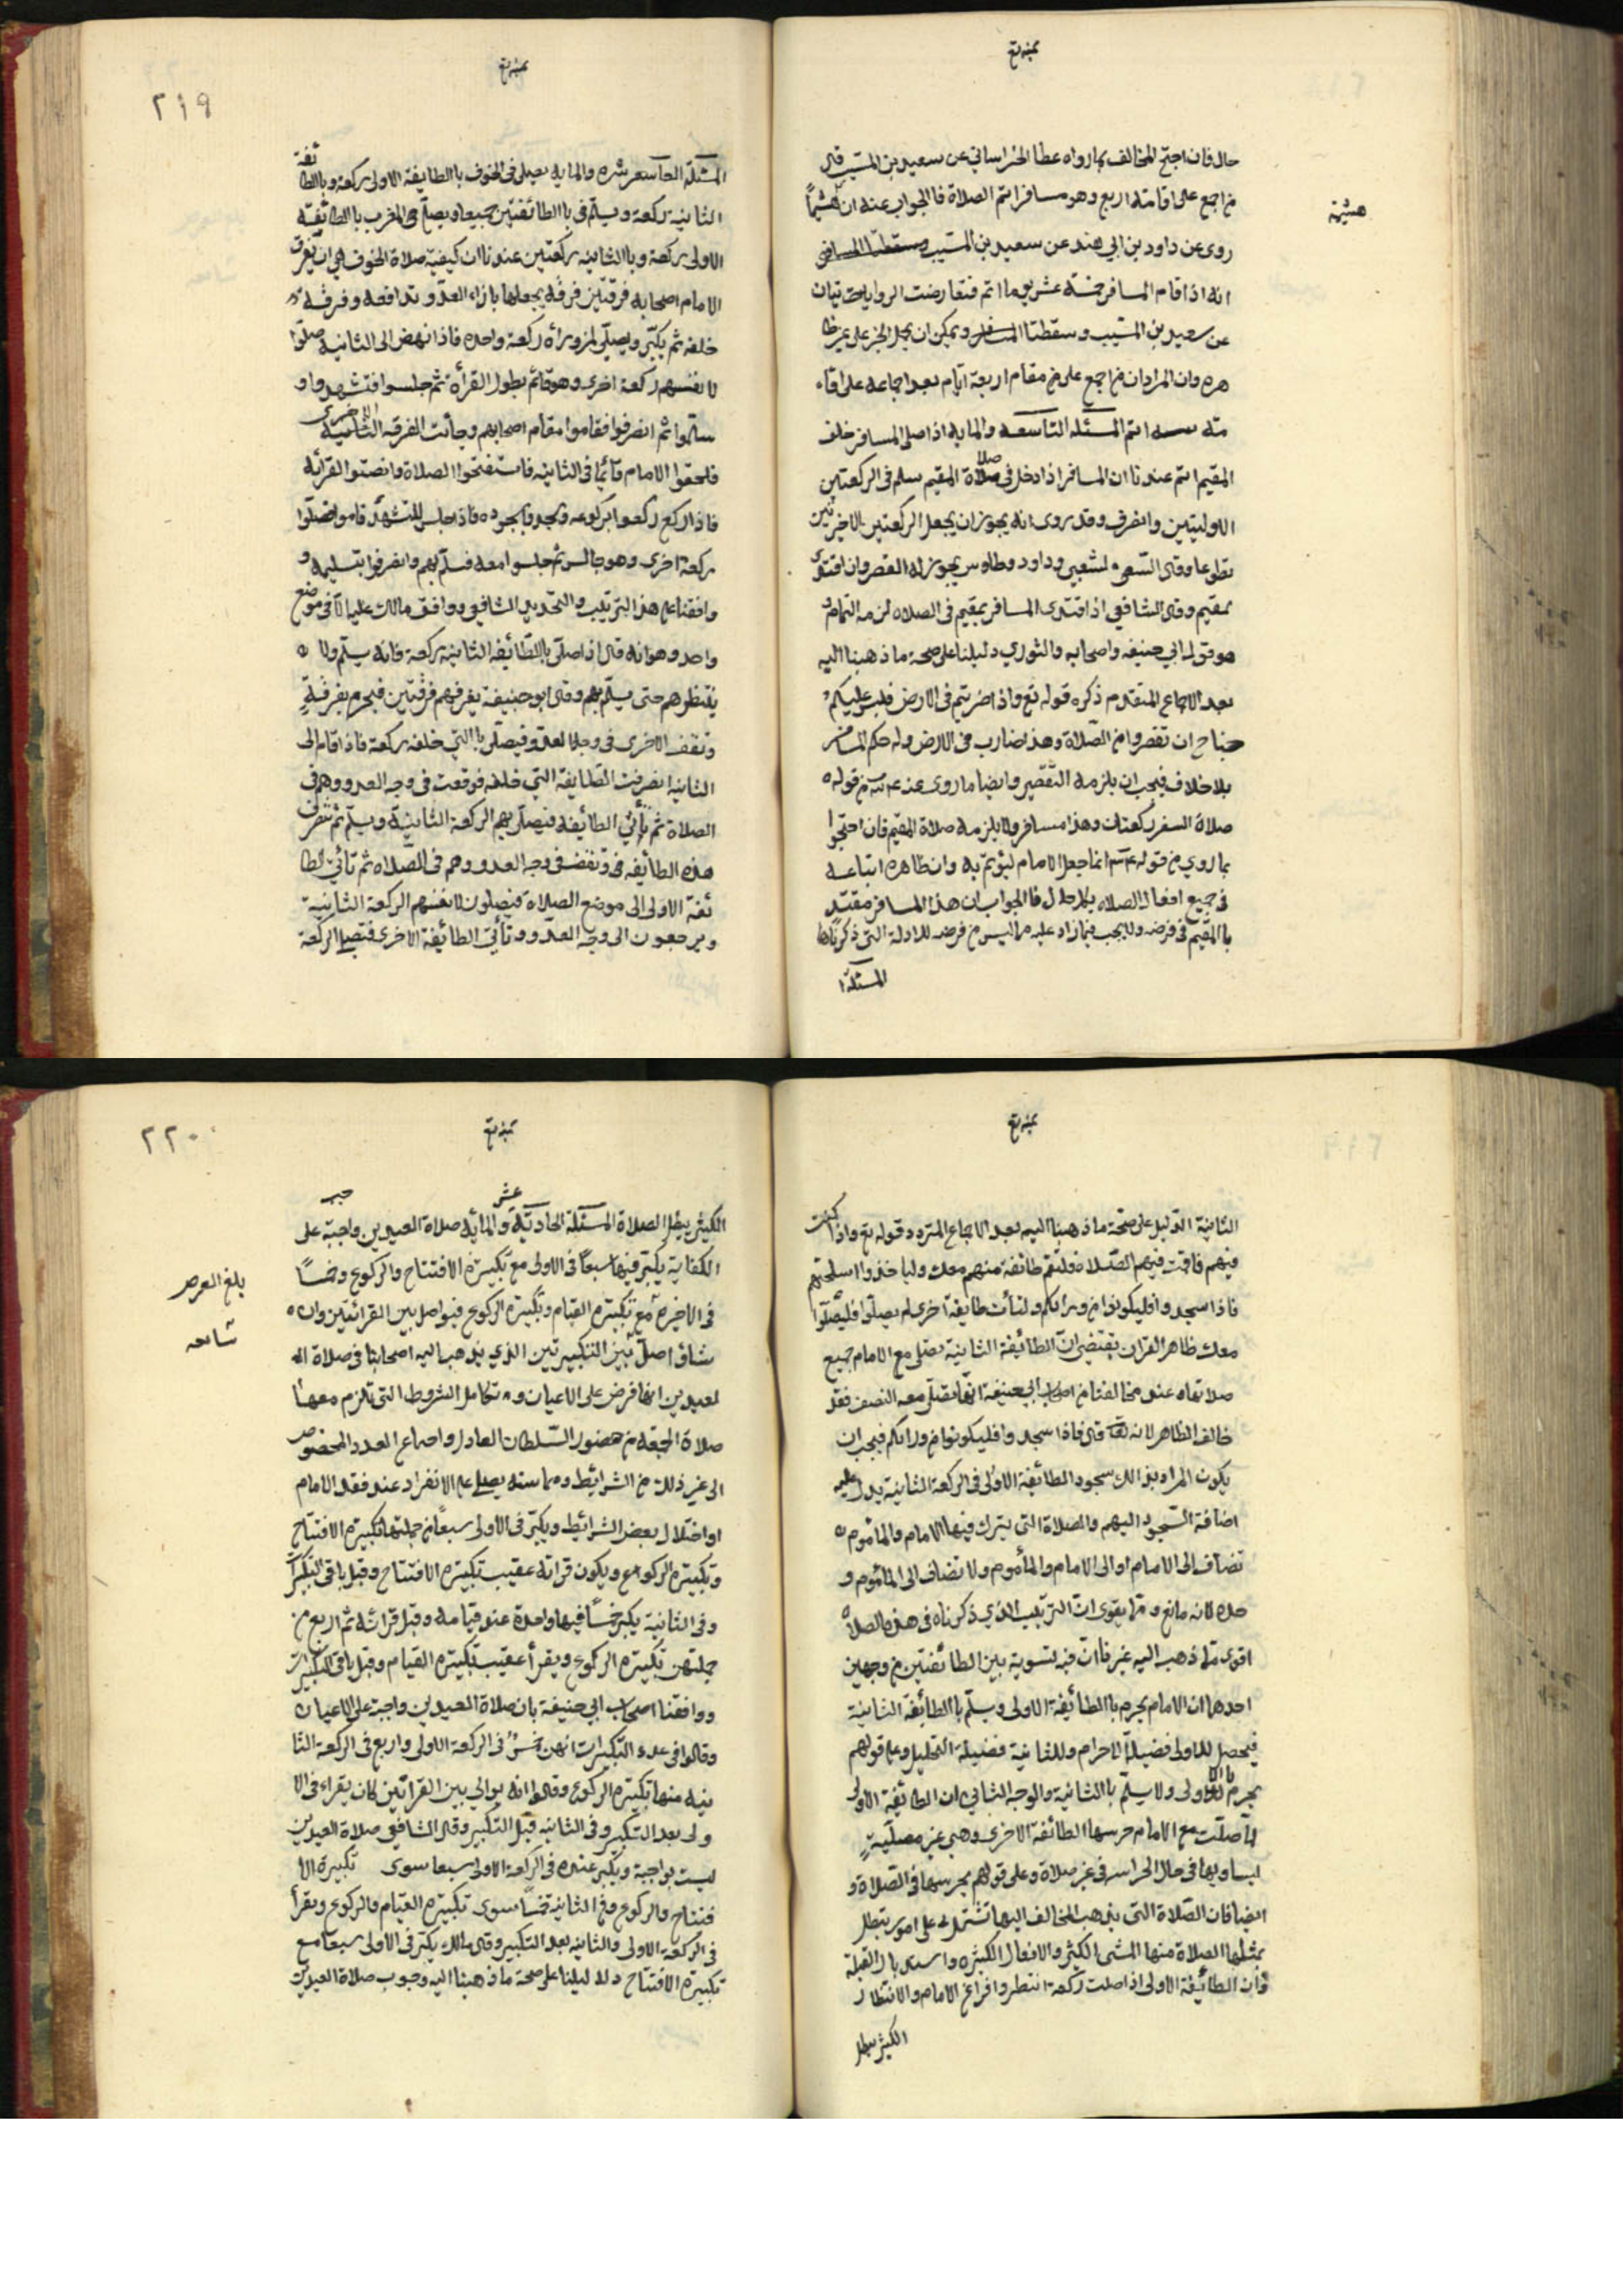 حال فان احتج المخالف بما رواه عطا الخراساني عن سعيد بن المسيب قال
من اجمع على اقامته اربع وهو مسافر اتم الصلاة فالجواب عنه ان هشيماً
هشيم
روى عن داود بن ابي هند عن سعيد بن المسيب
انه اذا قام المسافر خمسة عشر يوما اتم فتعارضت الروايات
عن سعيد بن المسيب وسقطتا ويمكن ان يحمل الخبر على غير ظا
هره وان المراد ان من اجمع على من مقام اربعة ايام بعد اجماعه على اقا
مته اتم المسئلة التاسعه والمايه اذا صلى المسافر خلف
المقيم اتم عندنا ان المسافر اذا دخل في صلاة المقيم سلم في الركعتين
الاوليتين وانصرف وقد روى انه يجوز ان يجعل الركعتين الاخرتين
تطوعا وقال الشعبي وداود وطاوس يجوز له القصر وان اقتدى
بمقيم وقال الشافعي اذا اقتدى المسافر بمقيم في الصلاه لزمه التمام و
هو قول ابي حنيفه واصحابه والثوري دليلنا على صحة ما ذهبنا اليه
بعد الاجماع المتقدم ذكره قوله تع واذا ضربتم في الارض فليس عليكم
جناح ان تقصروا من الصلاة وهذا ضارب في الارض وله حكم المسافر
بلا خلاف فيجب ان يلزمه التقصير وايضا ما روى عنه من قوله
صلاة السفر ركعتان وهذا مسافر ولا يلزمه صلاة المقيم فان احتجوا
بما روي من قوله انما جعل الامام ليؤتم به وان ظاهره اتباعه
في جميع افعال الصلاه بكل حال فالجواب ان هذا المسافر مقتد
بالمقيم في فرضه ولا يجب فيما زاد عليه مما ليس من فرضه للادلة التي ذكرناها
المسئلة ا
٢١٩
المسئلة العاشره والمايه يصلى في الخوف باالطايفة الاولى ركعة وباالطا ئفة
الثانية ركعة ويسلم في باالطائفتين جميعا ويصلي في المغرب باالطائفة
الاولى ركعة وباالثانيه ركعتين عندنا ان كيفية صلاة الخوف هي ان يفرق
الامام اصحابه فرقتين فرقه يجعلها بازاء العدو تدافعه وفرقة
خلفه ثم يكبر ويصلي بمن وراه ركعة واحده فاذا نهض الى الثانية صلوا
لانفسهم ركعة اخرى وهو قائم يطول القرأة ثم جلسوا فتشهدوا و
سلموا ثم انصرفوا فقاموا مقام اصحابهم وجأت الفرقه الاخرى
فلحقوا الامام قائما في الثانيه فاستفتحوا الصلاة وانصتوا القرائه
فاذا ركع ركعوا بركوعه وسجدوا بسجوده فاذا جلس للتشهد قاموا فصلوا
ركعة اخرى وهو جالس ثم جلسوا معه فسلم بهم وانصرفوا بتسليمه و
وافقنا على هذا الترتيب والتحديد الشافعي ووافق مالك عليه الا في موضع
واحد وهو انه قال اذا صلى باالطائفه الثانية ركعة فانه يسلم ولا
ينتظرهم حتى يسلم بهم وقال ابو حنيفة يفرقهم فرقتين فيحرم بفرقة
وتقف الاخرى في وجه العدو فيصلى باالتي خلفه ركعة فاذا قام الى
الثانية انصرفت الطايفة التي خلفه فوقعت في وجه العدو وهم في
الصلاة ثم تأتي الطائفه فيصلى بهم الركعة الثانية ويسلم ثم تنصرف
هذه الطائفه وتقف في وجه العدو وهم في الصلاه ثم تأتي الطا
ئفة الاولى الى موضع الصلاة فيصلون لانفسهم الركعة الثانية
ويرجعون الى وجه العدو وتأتي الطائفة الاخرى فتصلي الركعة
الثانية الدليل على صحة ما ذهبنا اليه بعد الاجماع المتردد قوله تع واذا كنت
فيهم فاقمت فيهم الصلاة فلتقم طائفة منهم معك وليا خذوا اسلحتهم
فاذا سجدوا فليكونوا من ورائكم ولتأت طايفة اخرى لم يصلوا فليصلوا
معك ظاهر القران يقتضي ان الطائفة الثانية تصلى مع الامام جميع
صلاتها وعند مخالفنا من اصحاب ابي حنيفة انها تصلى معه النصف فقد
خالف الظاهر لانه تعا قال فاذا سجدوا فليكونوا من ورائكم فيجب ان
يكون المراد بذالك سجود الطائفة الاولى في الركعة الثانية يدل عليه
اضافة السجود اليهم والصلاة التى يشرك فيها الامام والماموم
تضاف الى الامام او الى الامام والمأموم ولا تضاف الى المأموم و
حده لانه مانع ومما يقوى ان الترتيب الذي ذكرناه في هذه الصلاة
اقوى مما ذهب اليه غيرنا ان فيه لتسوية بين الطائفتين من وجهين
احدهما ان الامام يحرم باالطائفة الاولى ويسلم باالطائفة الثانية
فيحصل للاولى فضيلة الاحرام وللثانية فضيلة التحليل وعلى قولهم
يحرم باالاولى ولا يسلم باالثانية والوجه الثاني ان الطائفة الاولى
لما صلت مع الامام حرسها الطائفة الاخرى وهي غير مصلية
ليساويها في حال الحراسه في غير صلاة وعلى قولهم يحرسها في الصلاة و
ايضا فان الصلاة التي يذهب المخالف اليها تشتمل على امور يبطل
بمثلها الصلاة منها المشي الكثير والافعال الكثيره واستدبار القبلة
وان الطائفة الاولى اذا صلت ركعة انتظروا فراغ الامام والانتظار
الكثير يبطل
٢٢٠
الكثير يبطل الصلاة المسئلة الحادية عشر والمائه صلاة العيدين واجبة على
الكفاية يكبر فيها سبعا في الاولى مع تكبيرة الافتتاح والركوع وخمسا
بلغ العرض
في الاخيره مع تكبيرة القيام وتكبيرة الركوع فيواصل بين القرائتين وان
شاؤا صل بين التكبيرتين الذي يذهب اليه اصحابنا في صلاة ا
لعيدين انها فرض على الاعيان و تكامل الشروط التي تلزم معها
صلاة الجمعة من حضور السلطان العادل واجماع العدد المخصوص
الى غير ذلك من الشرائط وهما سنه يصلى على الانفراد عند فقد الامام
او اختلال بعض الشرائط ويكبر في الاولى سبعا من جملتها تكبيرة الافتتاح
وتكبيرة الركوع ويكون قرائه عقيب تكبيرة الافتتاح وقبل باقي التكبيرات
وفى الثانية يكبر خمسا فيها واحدة عند قيامه وقبل قرائه ثم اربع من
جملتهن تكبيرة الركوع ويقرأ عقيب تكبيرة القيام وقبل باقى التكبيرات
ووافقنا اصحاب ابي حنيفة بان صلاة العيدين واجبة على الاعيان
وقالوا في عدد التكبيرات انهن خمس في الركعة الاولى واربع في الركعة الثا
نيه منها تكبيرة الركوع وقالوا انه يوالي بين القرائتين كان يقراء في الا
ولى بعد التكبير وفى الثانيه قبل التكبير وقال الشافعي صلاة العيدين
ليست بواجبة ويكبر عنده في الركعة الاولى سبعا سوى تكبيرة الا
فتتاح والركوع وفي الثانية خمسا سوى تكبيرة القيام والركوع ويقرأ
في الركعة الاولى والثانية بعد التكبير وقال مالك يكبر في الاولى سبعا مع
تكبيرة الافتتاح دليلنا على صحة ما ذهبنا اليه وجوب صلاة العيدين